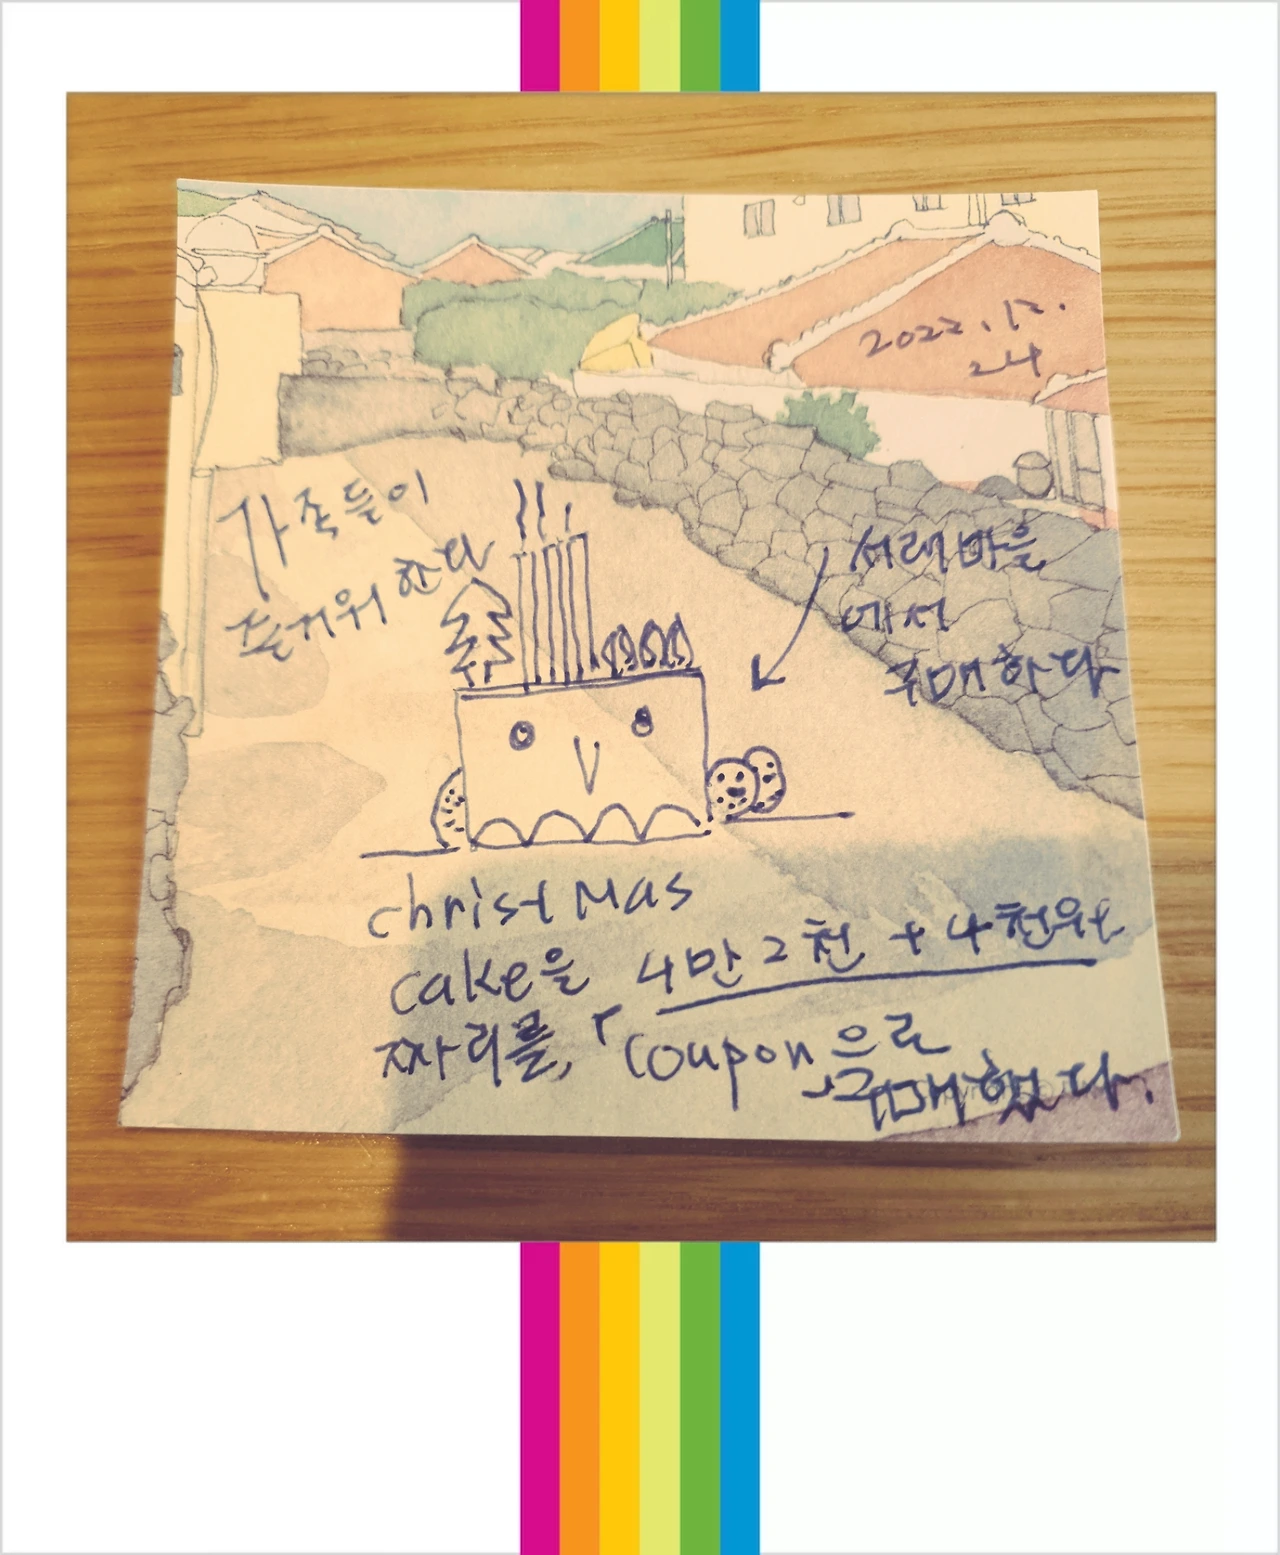 2022.12.
24
가족들이
즐거워 한다
서래마을
에서
구매하다
christMas
cake을 4만 2천 + 4천원
짜리를, coupon으로
구매했다.